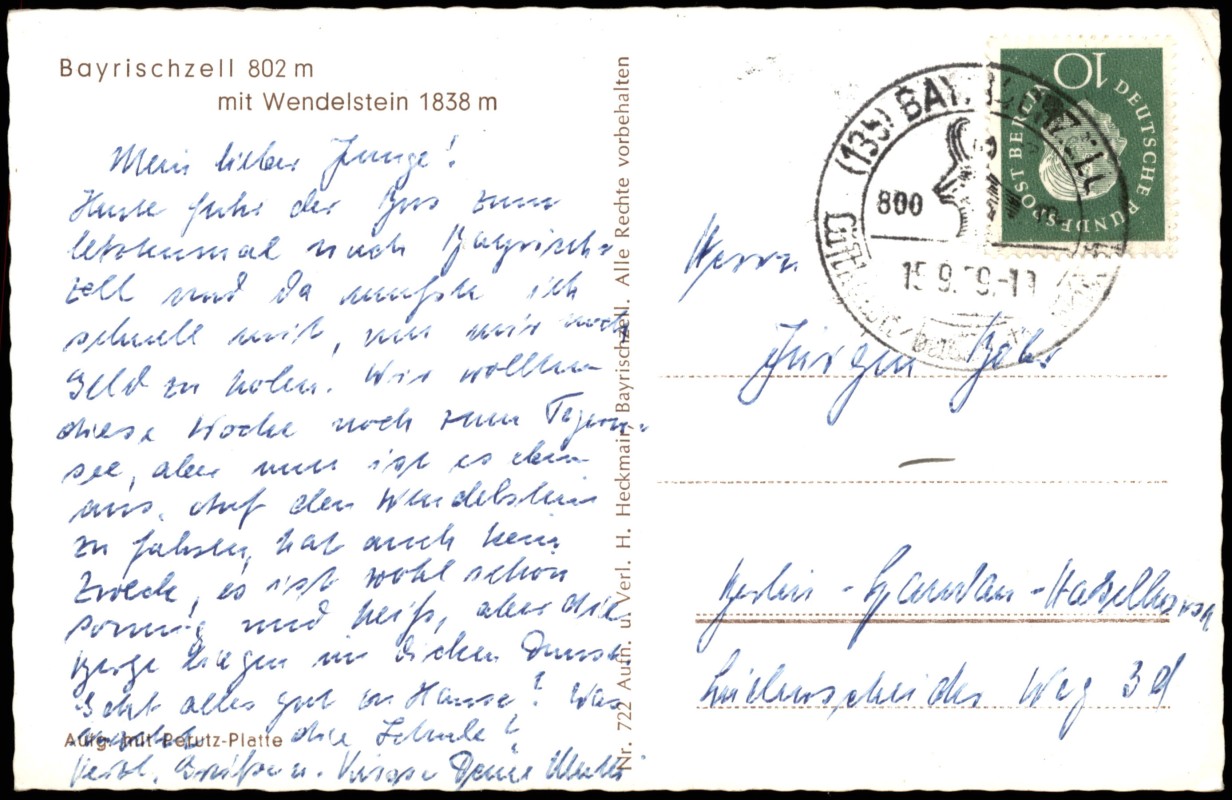 Bayrischzell 802 m
mit Wendelstein 1838 m
Mein lieber Junge!
Heute fuhr der Bus zum
letztenmal nach Bayrisch-
zell und da mußte ich
schnell mit, um mir noch
Geld zu holen. Wir wollten
diese Woche noch zum Tegern-
see, aber nun ist es
aus. Auf den Wendelstein
zu fahren, hat auch kein
Zweck, es ist wohl schon
sonnig und heiß, aber die
Berge liegen im dicken Dunst.
Geht alles gut zu Hause? Was
die Schule?
Aufg. mit Perutz-Platte
Herzl. Grüße u. Küsse Deine Mutti
Nr. 722 Aufn. u. Verl. H. Heckmair, Bayrischzell. Alle Rechte vorbehalten
(13b) BAYRISCHZELL
800
15.9.59-11
10
DEUTSCHE BUNDESPOST BERLIN
Herrn
Jürgen
Berlin-Spandau-Haselhorst
Lüdenscheider Weg 3d